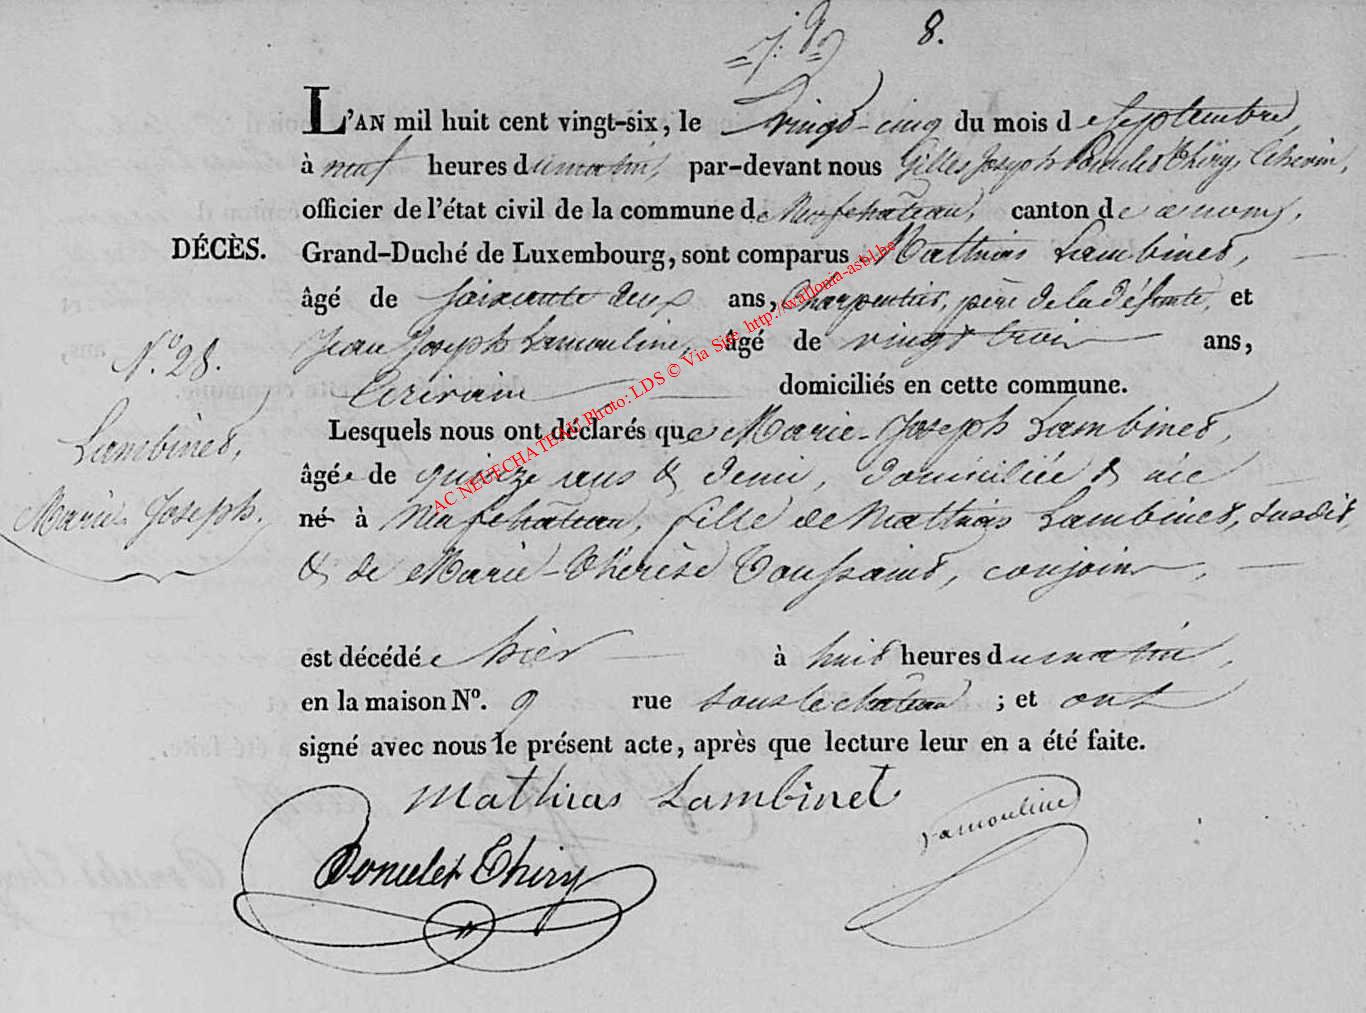 8.
L'AN mil huit cent vingt-six, le vingt-cinq du mois de Septembre,
à neuf heures du matin, par-devant nous Gilles Joseph Thiry, Echevin,
officier de l'état civil de la commune de Neufchâteau, canton de ce nom,
DÉCÈS. Grand-Duché de Luxembourg, sont comparus Mathias Lambinet,
âgé de soixante deux ans, Charpentier, père de la défunte, et
N.° 28. Jean Joseph Lamouline, âgé de vingt trois ans,
Ecrivain domiciliés en cette commune.
Lambinet, Lesquels nous ont déclarés que Marie-Joseph Lambinet,
âgée de quinze ans & demi, domiciliée & née
Marie-Joseph. né à Neufchâteau, fille de Mathias Lambinet, susdit,
& de Marie-Thérèse Toussaint, conjoints,
est décédée hier à huit heures du matin,
en la maison N°. 9 rue sous le château ; et ont
signé avec nous le présent acte, après que lecture leur en a été faite.
Mathias Lambinet
Lamouline
Thiry
AC NEUFCHATEAU Photo: LDS © Via Site http://wallonia-asbl.be